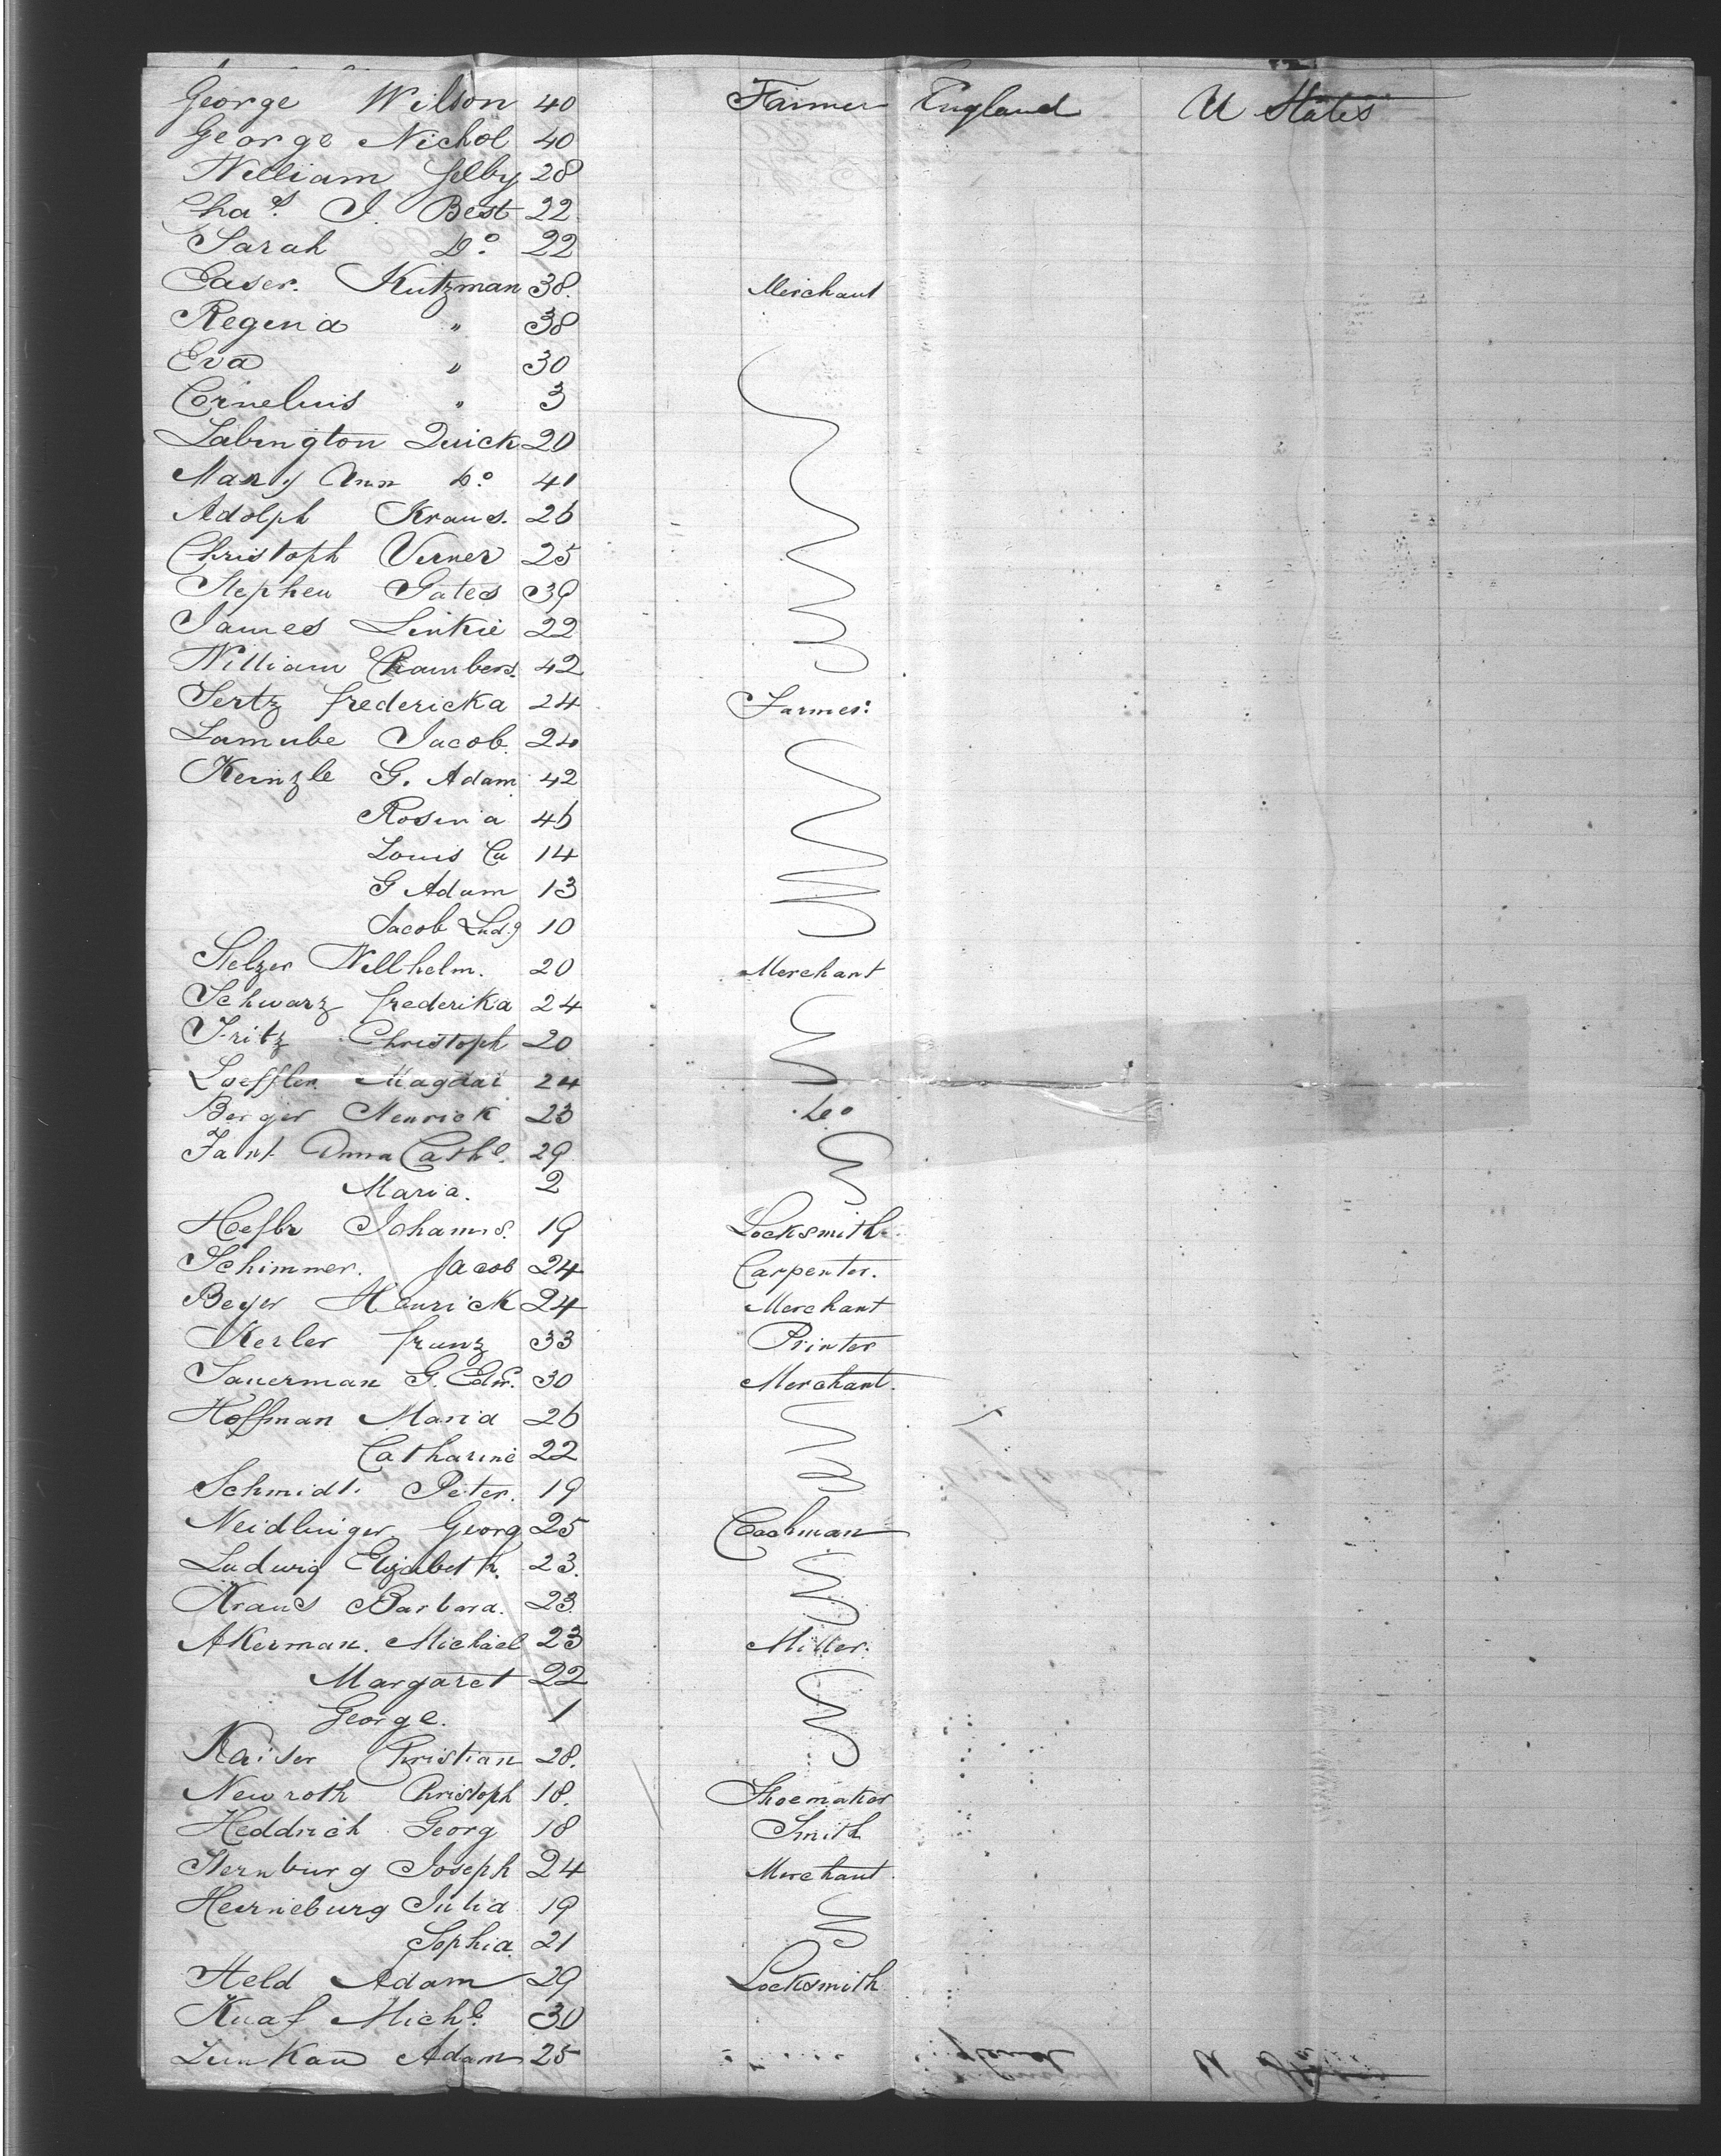 George Wilson 40 Farmer England U States
George Nichol 40
William Selby 28
Chas. J. Best 22
Sarah Do. 22
Caser. Kutzman 38. Merchant
Regina " 38
Eva " 30
Cornelius " 3
Labington Quick 20
Mary Ann Do. 41
Adolph Kraus. 26
Christoph Verner 25
Stephen Gates 39
James Linkie 22
William Chambers. 42
Sertz Fredericka 24 Farmer.
Lamube Jacob. 24
Keinzle G. Adam 42
Rosina 46
Louis Ca 14
G Adam 13
Jacob Lud.g 10
Stelzer Willhelm. 20 Merchant
Schwarz Frederika 24
Fritz Christoph 20
Loeffler Magdal 24
Berger Henrick 23 Do
Fant Anna Cathe. 29
Maria. 2
Johanns. 19 Locksmith.
Schimmer. Jacob 24 Carpenter.
Beyer Henrick 24 Merchant
Kerler Franz 33 Printer
Sauerman G. Edw. 30 Merchant.
Hoffman Maria 26
Catharine 22
Schmidt. Peter. 19
Neidlinger Georg 25 Coahman
Ludwig Elizabeth. 23.
Kraus Barbara. 23.
Akerman. Michael 23 Miller.
Margaret 22
George. 1
Kaiser Christian 28.
Newroth Christoph 18. Shoemaker
Heddrich Georg 18 Smith
Sternburg Joseph 24 Merchant
Heirneburg Julia 19
Sophia. 21
Held Adam 29 Locksmith
Knaf Michl. 30
Adam 25